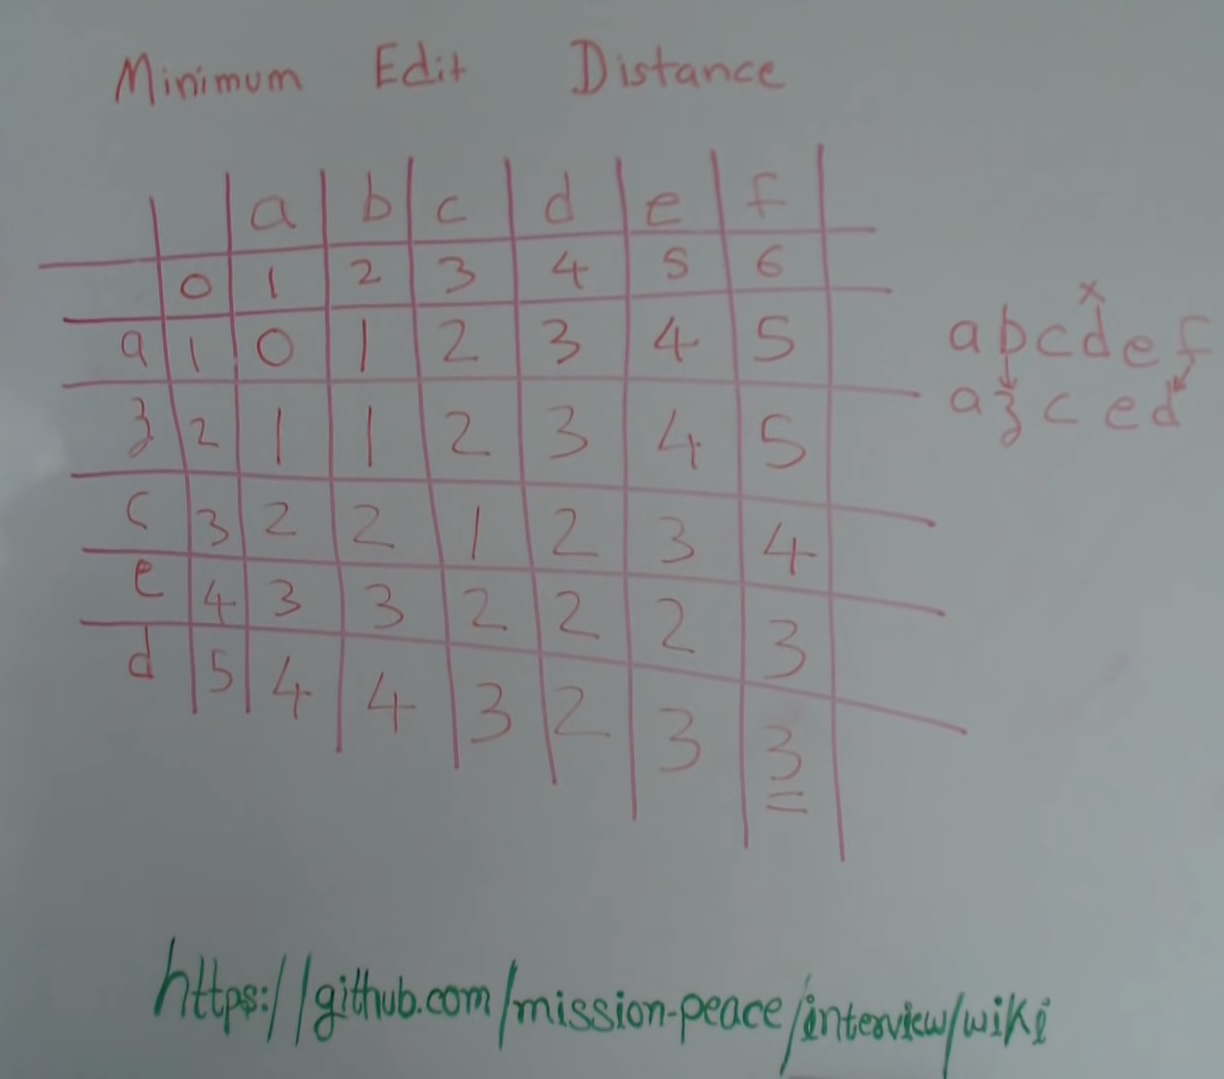 Minimum Edit Distance
a b c d e f
0 1 2 3 4 5 6
a 1 0 1 2 3 4 5
z 2 1 1 2 3 4 5
c 3 2 2 1 2 3 4
e 4 3 3 2 2 2 3
d 5 4 4 3 2 3 3
x
abcdef
azced
https://github.com/mission-peace/interview/wiki